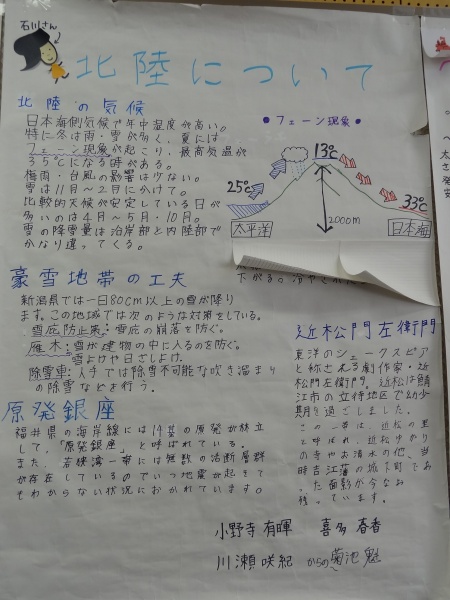 石川さん
北陸について
北陸の気候
日本海側気候で年中湿度が高い。
特に冬は雨・雪が多く、夏には
フェーン現象が起こり、最高気温が
35℃になる時がある。
梅雨・台風の影響は少ない。
雪は11月～2月に分けて。
比較的天候が安定している日が
多いのは4月～5月・10月。
雪の降雪量は沿岸部と内陸部で
かなり違ってくる。
●フェーン現象●
13℃
25℃
33℃
2000m
太平洋
日本海
豪雪地帯の工夫
新潟県では一日80cm以上の雪が降り
ます。この地域では次のような対策をしている。
雪庇防止策：雪庇の崩落を防ぐ。
雁木：雪が建物の中に入るのを防ぐ。
雪よけや日さしよけ。
除雪車：人手では除雪不可能な吹き溜まり
の除雪などを行う。
原発銀座
福井県の海岸線には14基の原発が林立
して、「原発銀座」と呼ばれている。
また、若狭湾一帯には無数の活断層群
が存在しているのでいつ地震が起きて
もわからない状況におかれています。
近松門左衛門
東洋のシェークスピア
と称される劇作家・近
松門左衛門。近松は鯖
江市の立待地区で幼少
期を過ごしました。
この一帯は、近松の里
と呼ばれ、近松ゆかり
の寺やお清水の他、当
時吉江藩の城下町であ
った面影が今なお
残っています。
小野寺有暉 喜多春香
川瀬咲紀 からの菊池魁